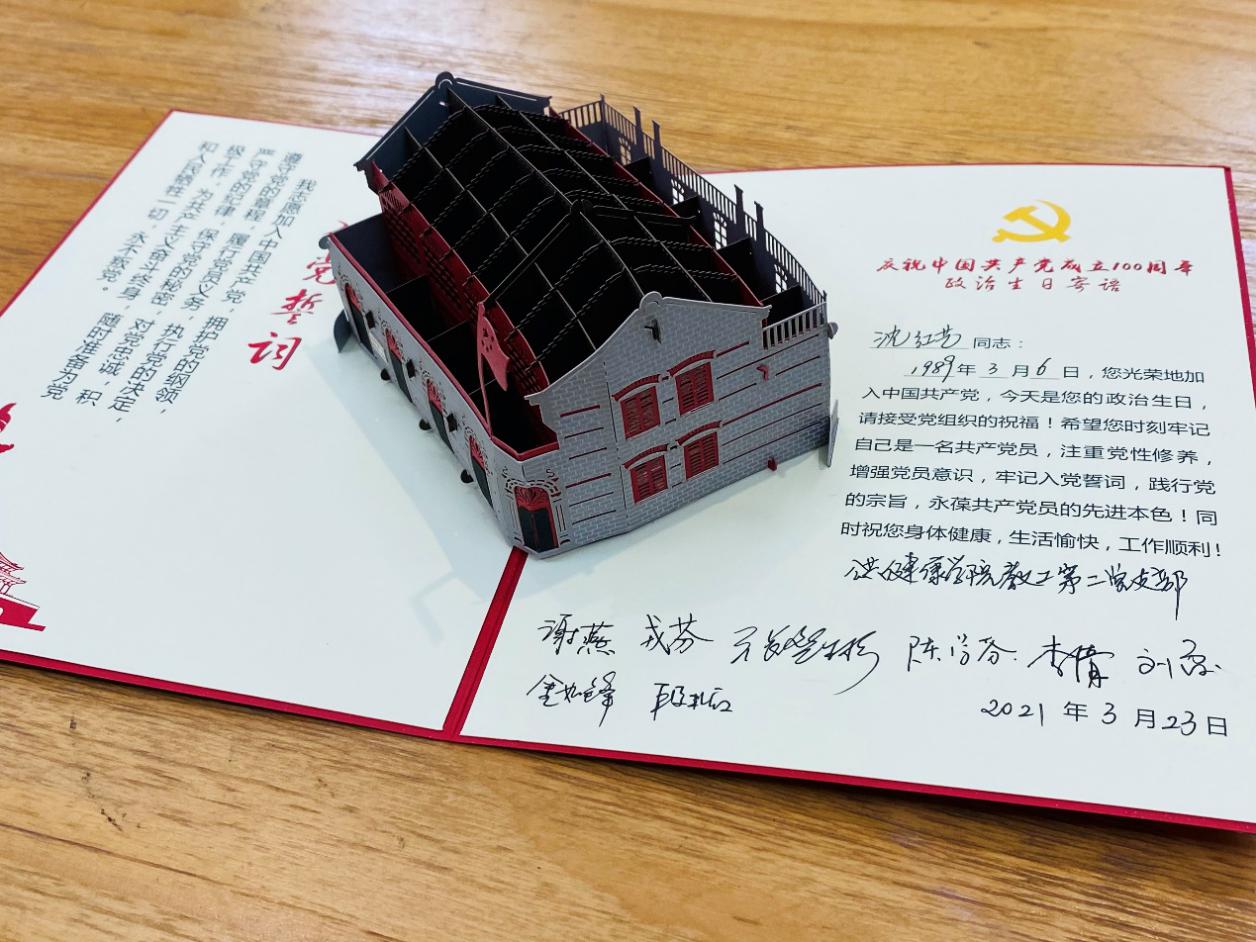 党誓词
我志愿加入中国共产党，拥护党的纲领，
遵守党的章程，履行党员义务，执行党的决定，
严守党的纪律，保守党的秘密，对党忠诚，积
极工作，为共产主义奋斗终身，随时准备为党
和人民牺牲一切，永不叛党。
庆祝中国共产党成立100周年
政治生日寄语
沈红芳 同志：
1989年 3 月 6 日，您光荣地加
入中国共产党，今天是您的政治生日，
请接受党组织的祝福！希望您时刻牢记
自己是一名共产党员，注重党性修养，
增强党员意识，牢记入党誓词，践行党
的宗旨，永葆共产党员的先进本色！同
时祝您身体健康，生活愉快，工作顺利！
健康学院教工第二党支部
谢燕 戎芬 陈学芬 李倩
2021 年 3 月 23 日